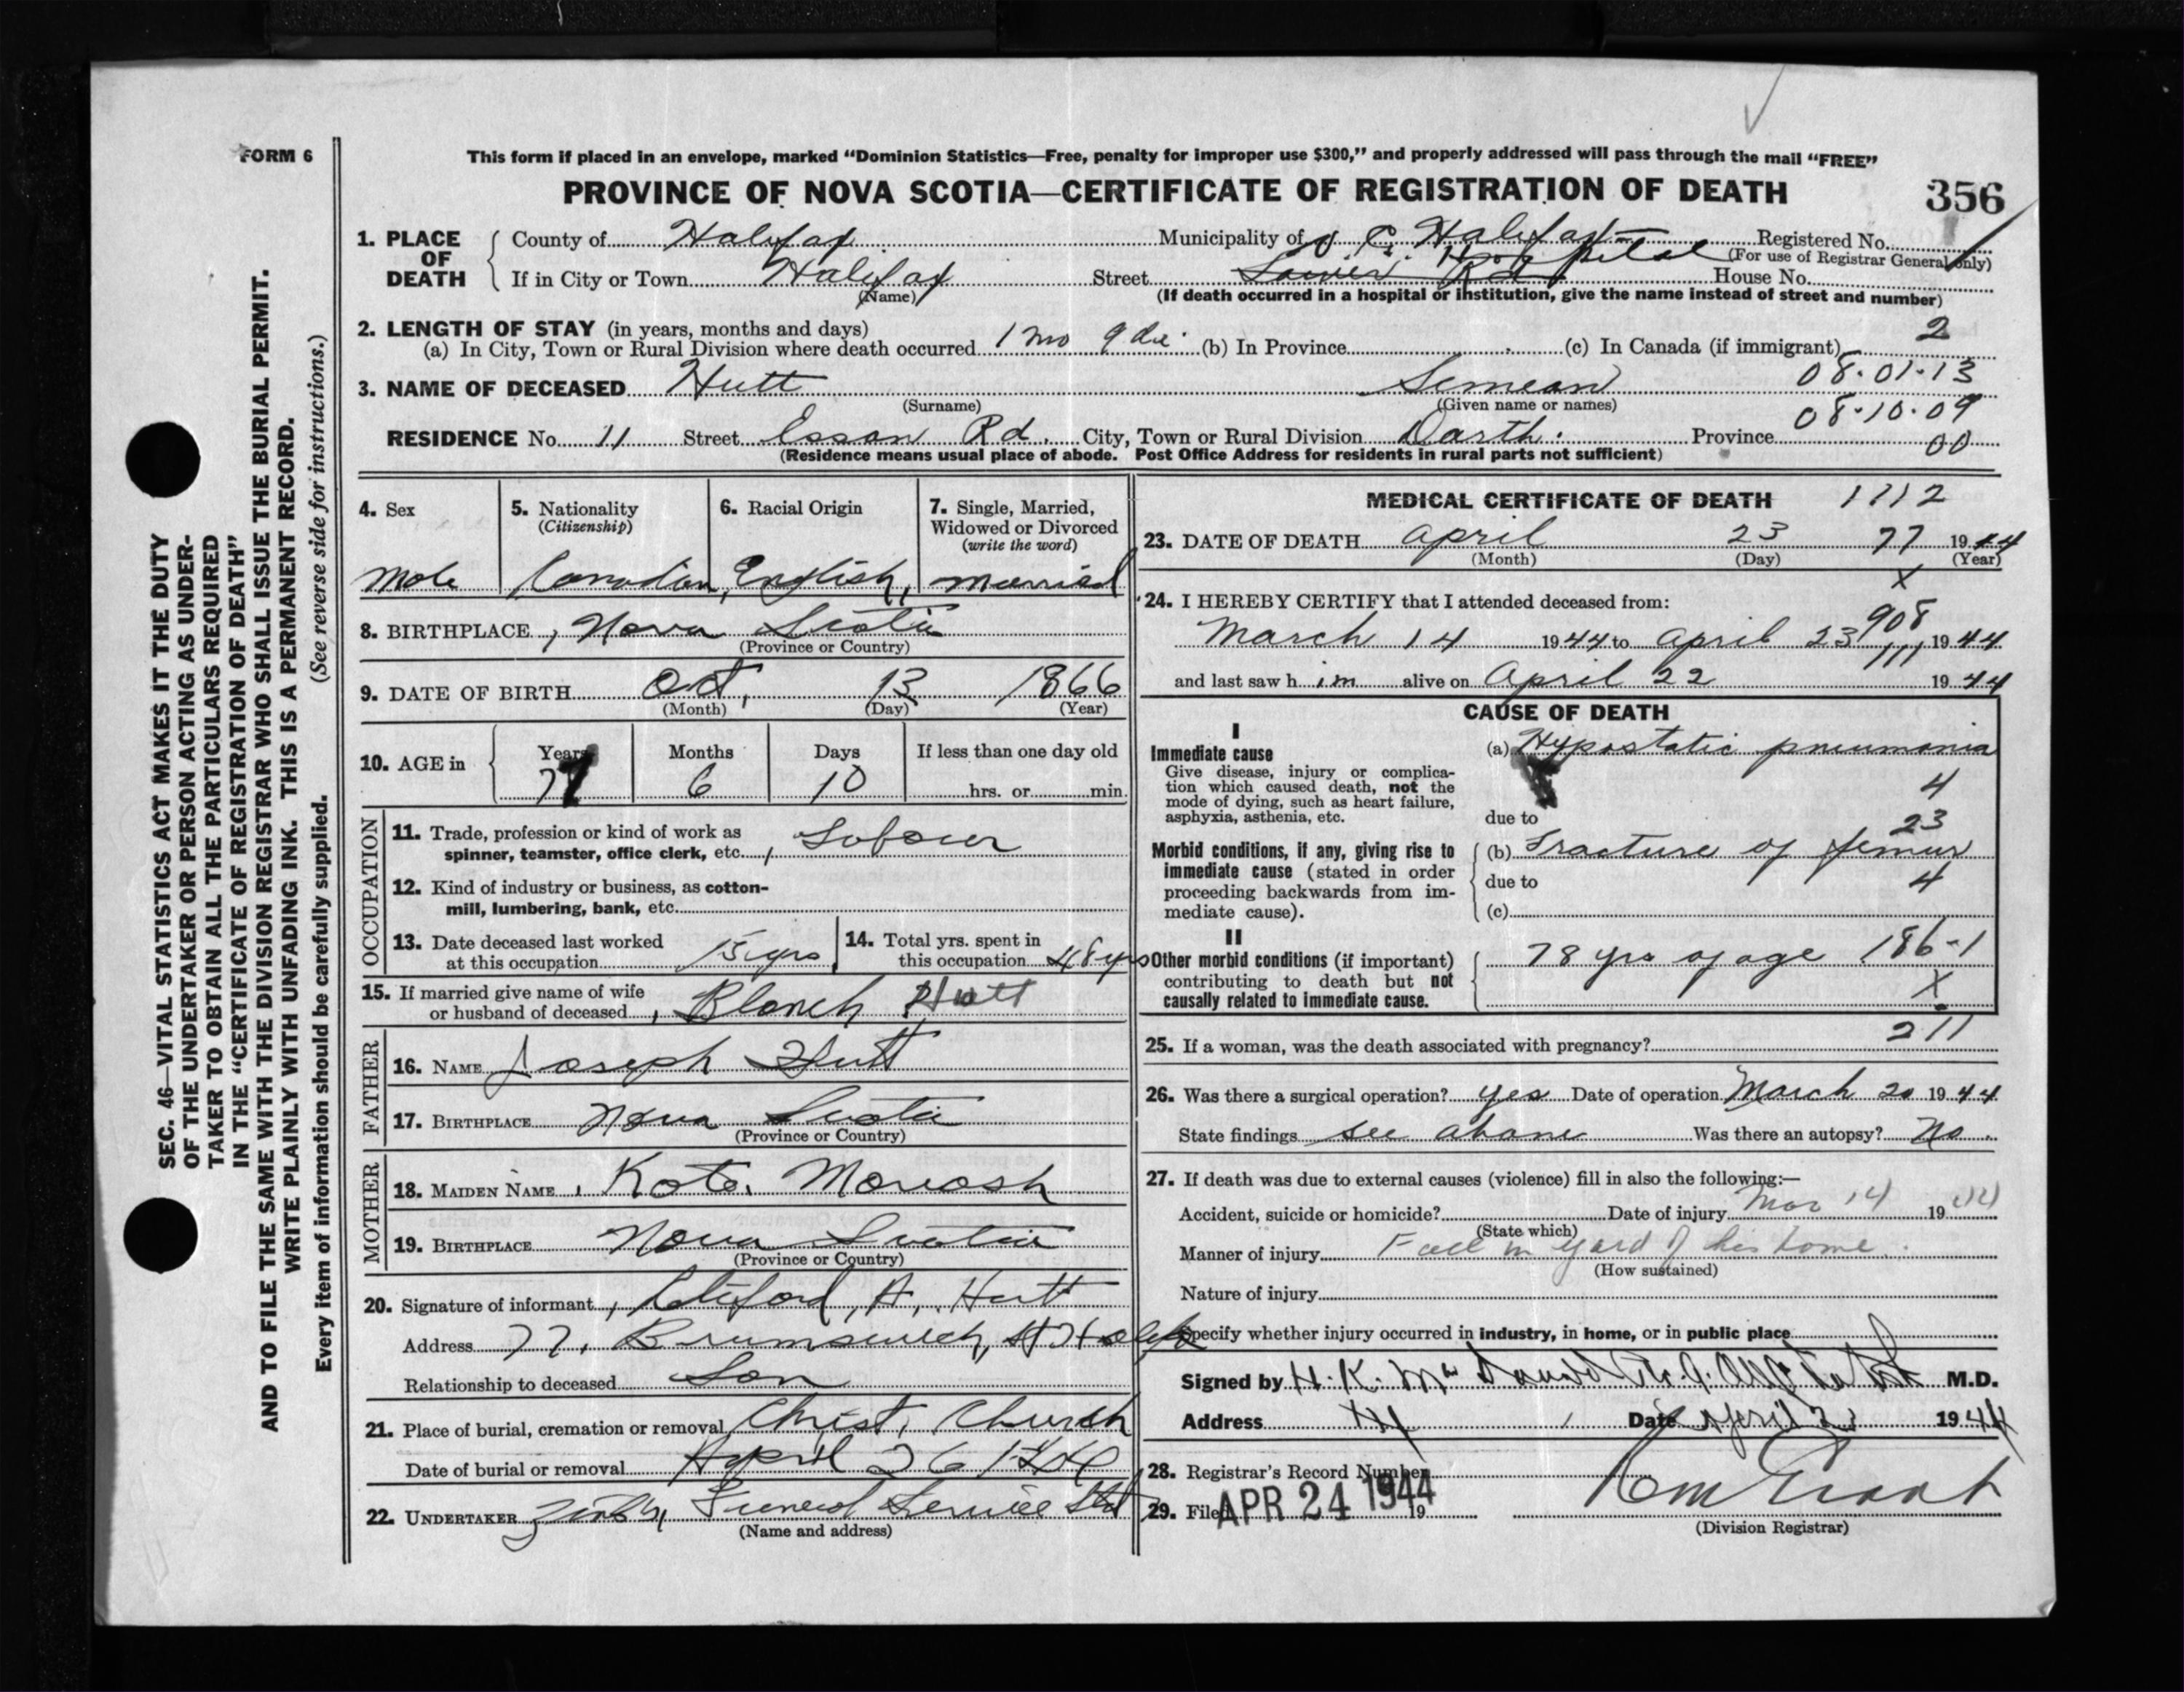 FORM 6
This form if placed in an envelope, marked “Dominion Statistics—Free, penalty for improper use $300,” and properly addressed will pass through the mail “FREE”
PROVINCE OF NOVA SCOTIA—CERTIFICATE OF REGISTRATION OF DEATH
356
SEC. 46—VITAL STATISTICS ACT MAKES IT THE DUTY
OF THE UNDERTAKER OR PERSON ACTING AS UNDER-
TAKER TO OBTAIN ALL THE PARTICULARS REQUIRED
IN THE “CERTIFICATE OF REGISTRATION OF DEATH”
AND TO FILE THE SAME WITH THE DIVISION REGISTRAR WHO SHALL ISSUE THE BURIAL PERMIT.
WRITE PLAINLY WITH UNFADING INK. THIS IS A PERMANENT RECORD.
Every item of information should be carefully supplied. (See reverse side for instructions.)
1. PLACE OF DEATH
County of Halifax Municipality of Halifax Registered No.
(For use of Registrar General only)
If in City or Town Halifax Street Hospital House No.
(Name)
(If death occurred in a hospital or institution, give the name instead of street and number)
2. LENGTH OF STAY (in years, months and days)
(a) In City, Town or Rural Division where death occurred 1 mo 9 (b) In Province (c) In Canada (if immigrant) 2
08-01-13
3. NAME OF DECEASED Hutt Simean
(Surname) (Given name or names)
08-10-09
RESIDENCE No. 11 Street Esson Rd. City, Town or Rural Division Darth. Province 00
(Residence means usual place of abode. Post Office Address for residents in rural parts not sufficient)
4. Sex
Male
5. Nationality
(Citizenship)
Canadian,
6. Racial Origin
English,
7. Single, Married,
Widowed or Divorced
(write the word)
Married
8. BIRTHPLACE Nova Scotia
(Province or Country)
9. DATE OF BIRTH Oct, 13 1866
(Month) (Day) (Year)
10. AGE in
Years Months Days If less than one day old
77 6 10 hrs. or min.
OCCUPATION
11. Trade, profession or kind of work as
spinner, teamster, office clerk, etc. Labour
12. Kind of industry or business, as cotton-
mill, lumbering, bank, etc.
13. Date deceased last worked
at this occupation 15 yrs
14. Total yrs. spent in
this occupation 48 yrs
15. If married give name of wife
or husband of deceased Blanch Hutt
FATHER
16. NAME Joseph Hutt
17. BIRTHPLACE Nova Scotia
(Province or Country)
MOTHER
18. MAIDEN NAME Kate
19. BIRTHPLACE Nova Scotia
(Province or Country)
20. Signature of informant A. Hutt
Address 77, Brunswick, St
Relationship to deceased Son
21. Place of burial, cremation or removal Christ, Church
Date of burial or removal April 26
22. UNDERTAKER Funeral Service Ltd
(Name and address)
MEDICAL CERTIFICATE OF DEATH 1712
23. DATE OF DEATH April 23 77 1944
(Month) (Day) (Year)
X
24. I HEREBY CERTIFY that I attended deceased from:
908
March 14 1944 to April 23 1944
111
and last saw h im alive on April 22 1944
CAUSE OF DEATH
I
Immediate cause
Give disease, injury or complica-
tion which caused death, not the
mode of dying, such as heart failure,
asphyxia, asthenia, etc.
(a) Hypostatic pneumonia
4
due to
23
Morbid conditions, if any, giving rise to
immediate cause (stated in order
proceeding backwards from im-
mediate cause).
(b) Fracture of femur
due to 4
(c)
II
Other morbid conditions (if important)
contributing to death but not
causally related to immediate cause.
78 yrs of age 186-1
X
211
25. If a woman, was the death associated with pregnancy?
26. Was there a surgical operation? yes Date of operation March 20 1944
State findings see above Was there an autopsy? No.
27. If death was due to external causes (violence) fill in also the following:—
Accident, suicide or homicide? Date of injury Mar 14 1944
(State which)
Manner of injury Fall in yard of his home.
(How sustained)
Nature of injury
Specify whether injury occurred in industry, in home, or in public place
Signed by H. K. M.D.
Address Date April 1944
28. Registrar's Record Number
29. Filed APR 24 1944 19
(Division Registrar)